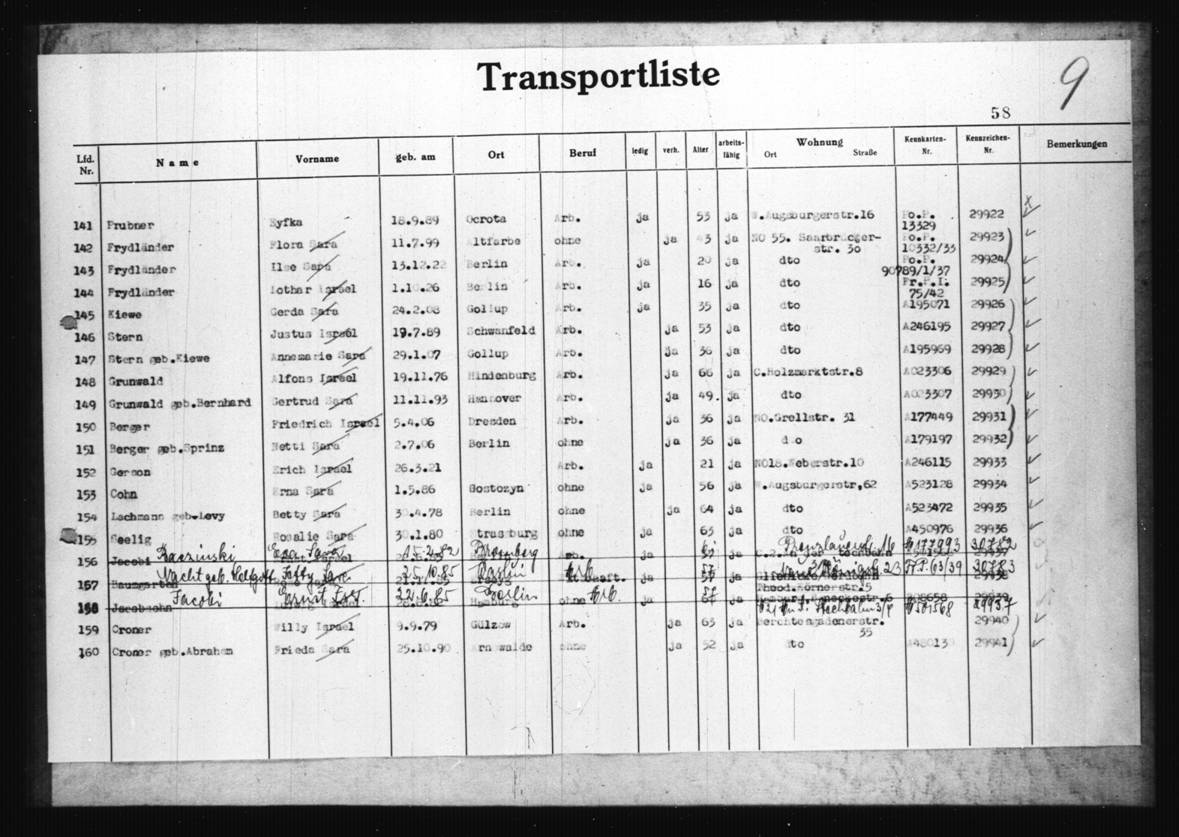 Transportliste
9
58
Lfd. Nr. Name Vorname geb. am Ort Beruf ledig verh. Alter arbeits-fähig Wohnung Ort Straße Kennkarten-Nr. Kennzeichen-Nr. Bemerkungen
141 Prubner Ryfka 18.9.89 Ocrota Arb. ja 53 ja W.Augsburgerstr.16 Po.P. 13329 29922
142 Frydländer Flora Sara 11.7.99 Altfarbe ohne ja 43 ja NO 55. Saarbrücker-str. 30 Po.P. 10332/33 29923
143 Frydländer Ilse Sara 13.12.22 Berlin Arb. ja 20 ja dto Po.P. 90789/1/37 29924
144 Frydländer Lothar Israel 1.10.26 Berlin Arb. ja 16 ja dto Fr.P.I. 75/42 29925
145 Kiewe Gerda Sara 24.2.08 Gollup Arb. ja 35 ja dto A195071 29926
146 Stern Justus Israel 19.7.89 Schwanfeld Arb. ja 53 ja dto A246195 29927
147 Stern geb.Kiewe Annemarie Sara 29.1.07 Gollup Arb. ja 36 ja dto A195969 29928
148 Grunwald Alfons Israel 19.11.76 Hindenburg Arb. ja 66 ja C.Holzmarktstr.8 A023306 29929
149 Grunwald geb.Bernhard Gertrud Sara 11.11.93 Hannover Arb. ja 49. ja dto A023307 29930
150 Berger Friedrich Israel 5.4.06 Dresden Arb. ja 36 ja NO.Grellstr. 31 A177449 29931
151 Berger geb.Sprinz Netti Sara 2.7.06 Berlin ohne ja 36 ja dto A179197 29932
152 Gerson Erich Israel 26.3.21 Arb. ja 21 ja NO18.Weberstr.10 A246115 29933
153 Cohn Erna Sara 1.5.86 Gostozyn ohne ja 56 ja W.Augsburgerstr,62 A523128 29934
154 Lachmann geb.Levy Betty Sara 30.4.78 Berlin ohne ja 64 ja dto A523472 29935
155 Seelig Rosalie Sara 30.1.80 Strasburg ohne ja 63 ja dto A450976 29936
Raczinski Sara Bromberg 30782
156 Jacobi Arb.
Nacht geb. Hellgott Sara 25.10.85 Arb. 57 63/39 30783
157
Jacobi Ernst Isr. 22.6.85 Berlin Arb. 57 29937
158 Jacobsohn
159 Croner Willy Israel 9.9.79 Gülzow Arb. ja 63 ja Berchtesgadenerstr. 35 29940
160 Croner geb.Abraham Frieda Sara 25.10.90 Arnswalde ohne ja 52 ja dto A480139 29941